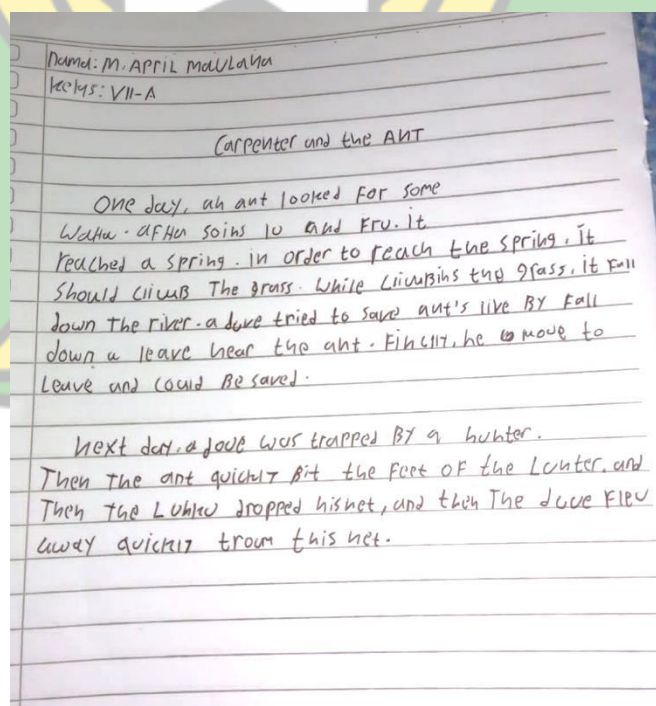 Nama: M. APRIL MAULANA
Kelas: VII-A
Carpenter and the ANT
One day, an ant looked For some
and it
reached a spring. in order to reach the spring, it
should climB The grass. While climBing the grass, it Fall
down The river. a dove tried to save ant's live BY Fall
down a leave near the ant. Finally, he move to
Leave and could Be saved.
next day, a dove was trapped BY a hunter.
Then The ant quickly Bit the Feet OF the and
Then The dropped his net, and then The dove Flew
away quickly this net.